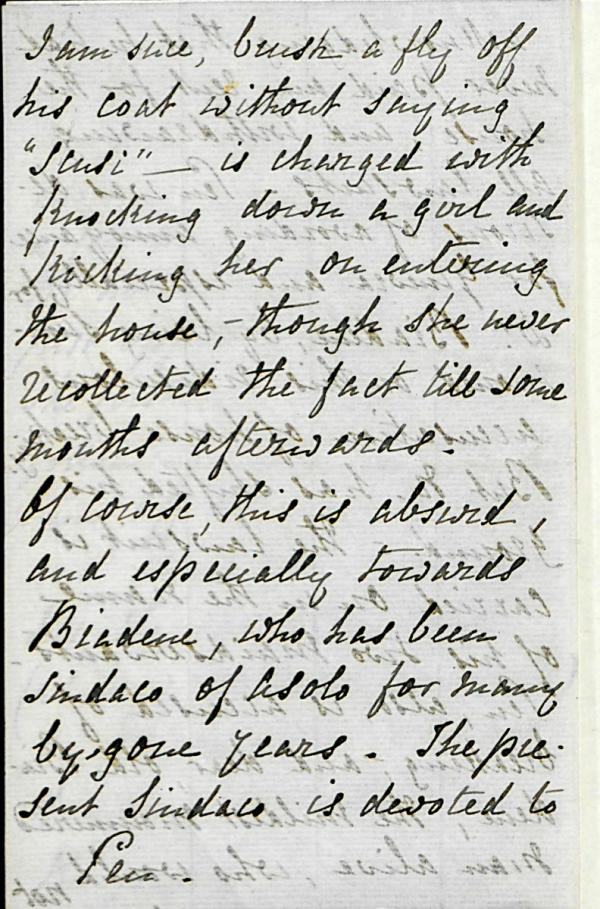 I am sure, brush a fly off
his coat without saying
"Scusi" — is charged with
knocking down a girl and
kicking her on entering
the house, - though she never
recollected the fact till some
months afterwards.
Of course, this is absurd,
and especially towards
Biadene, who has been
Sindaco of Asolo for many
by-gone years. The pre-
sent Sindaco is devoted to
Pen.